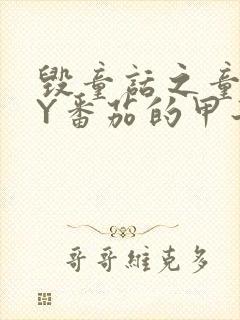 毁童话之童
Y番茄的甲
哥哥維克多